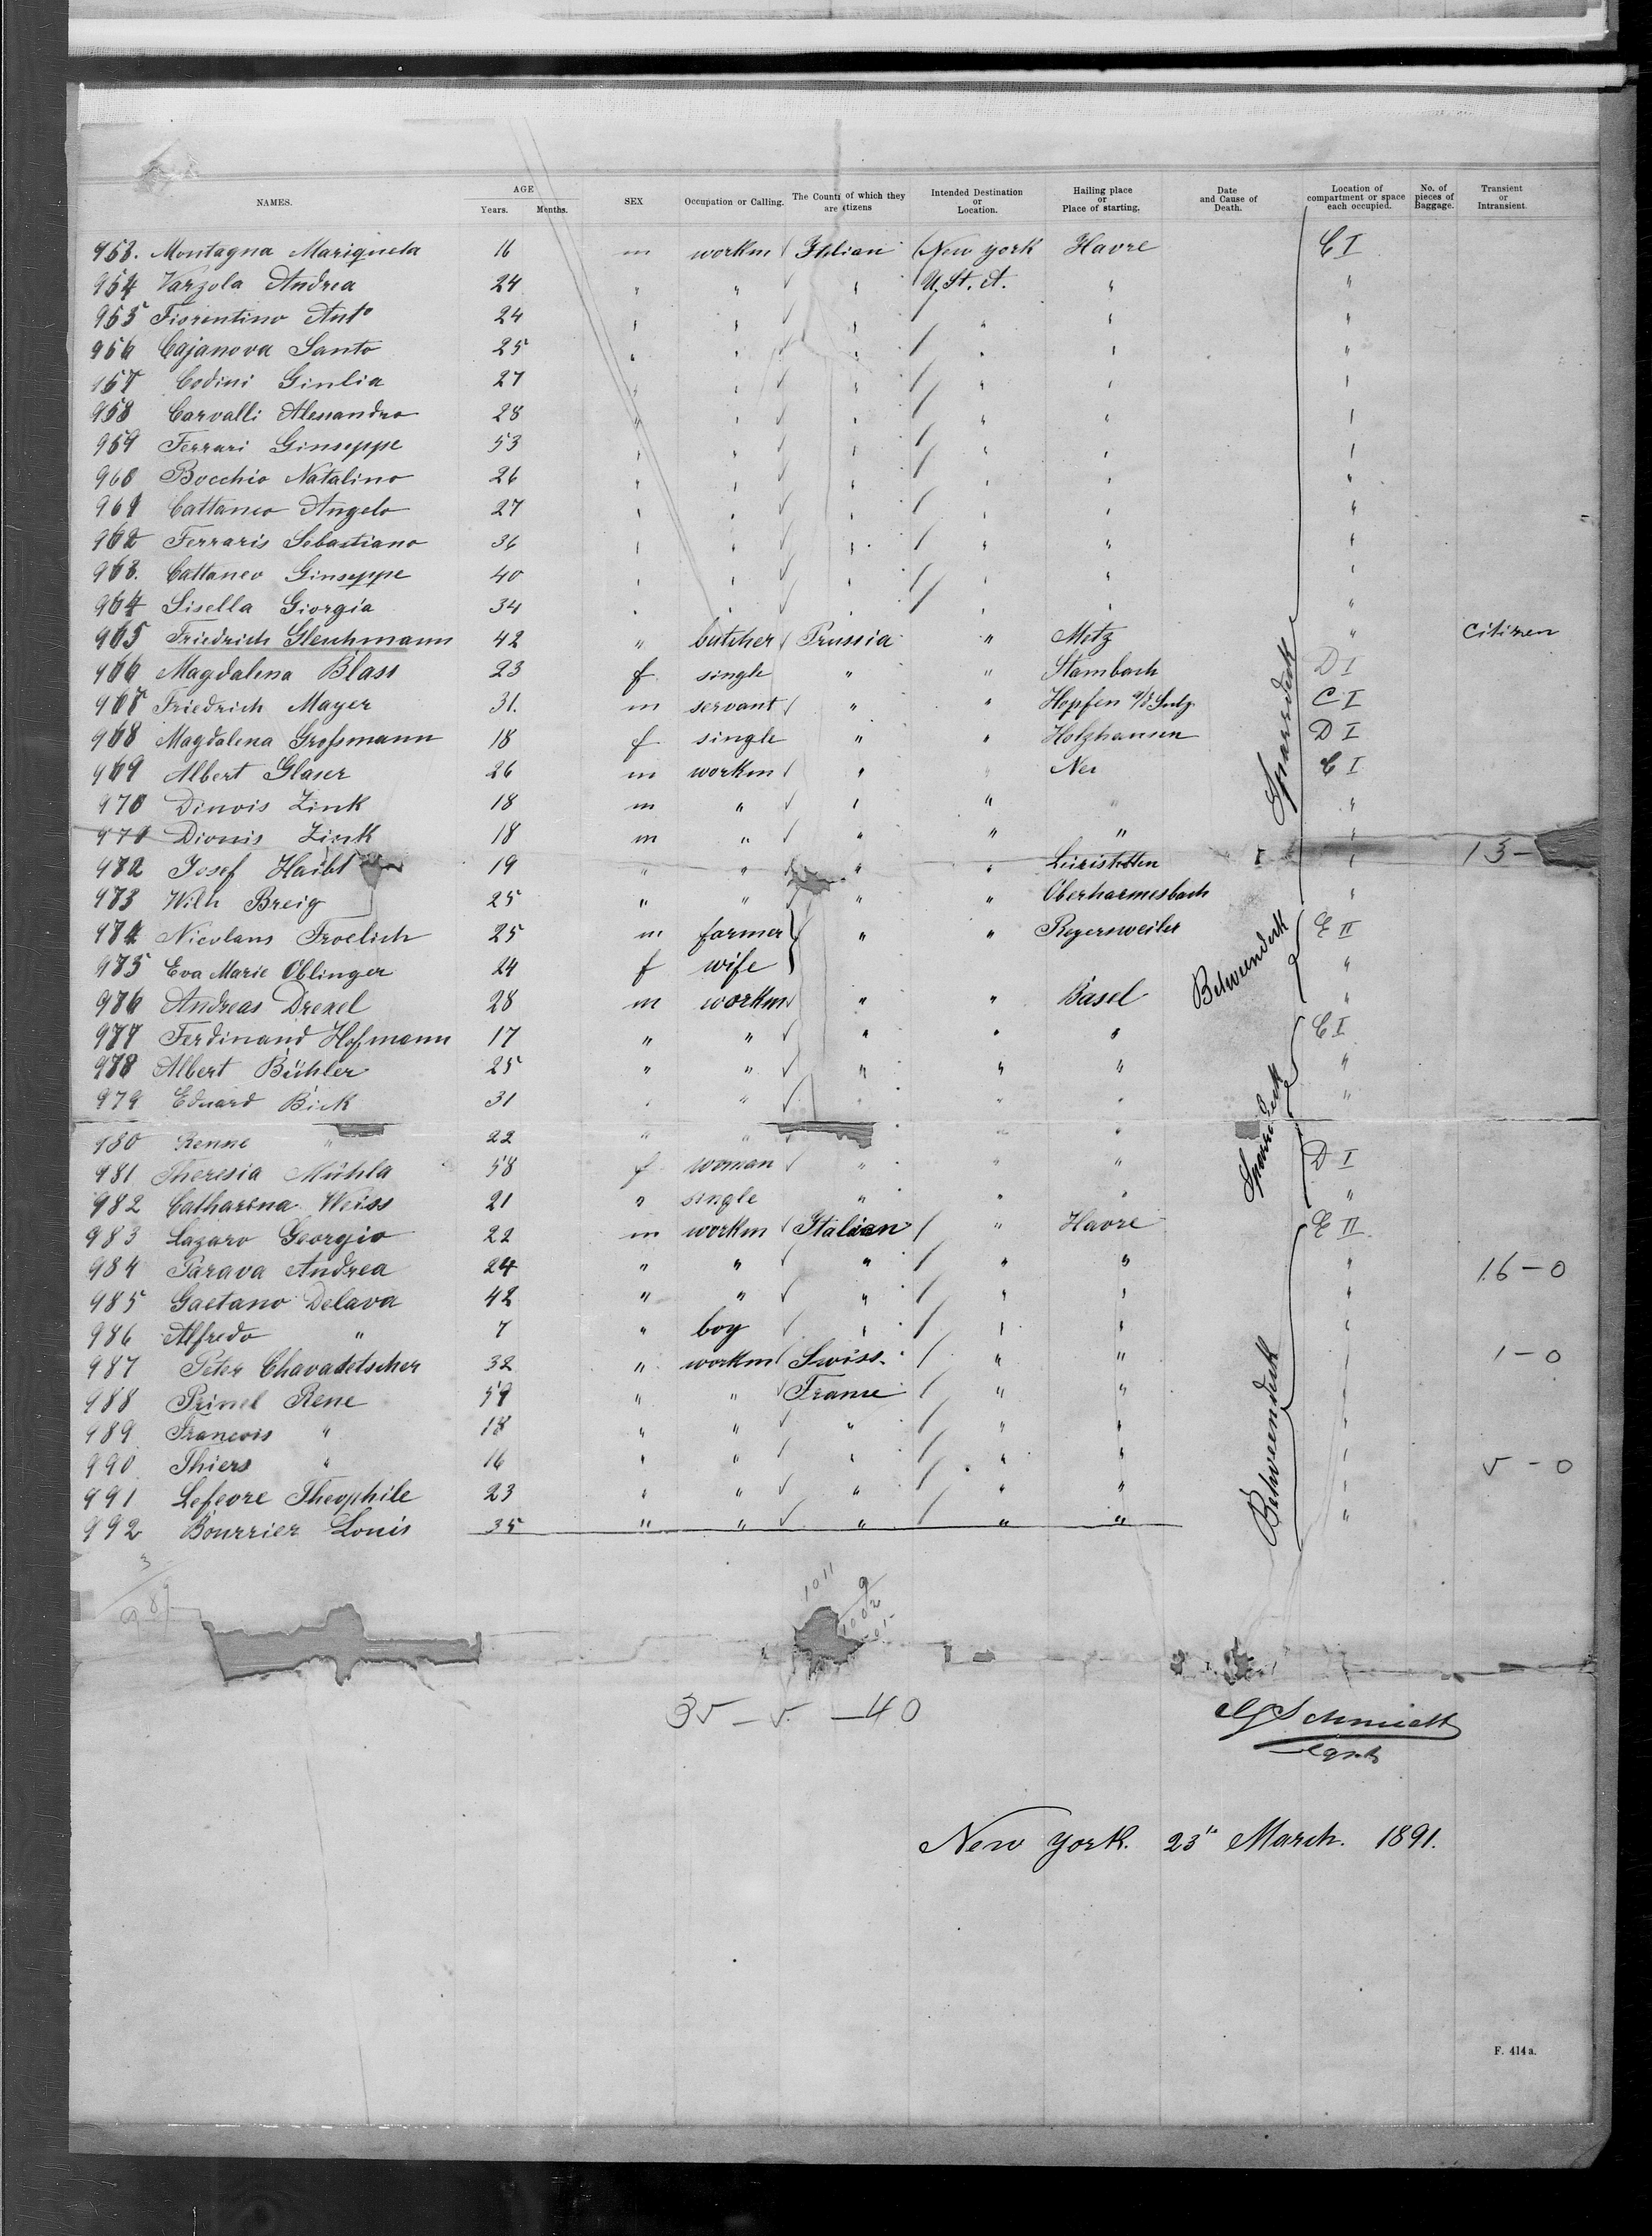 NAMES. AGE Years. Months. SEX Occupation or Calling. The County of which they are citizens Intended Destination or Location. Hailing place or Place of starting. Date and Cause of Death. Location of compartment or space each occupied. No. of pieces of Baggage. Transient or Intransient.
953. Montagna Mariqueta 16 m workm Italian New York Havre C I
954 Varzola Andrea 24 " " " U. St. A. " "
955 Fiorentino Anto 24 " " " " " "
956 Cajanova Santo 25 " " " " " "
957 Codini Giulia 27 " " " " " "
958 Carvalli Alessandro 28 " " " " " "
959 Ferrari Giuseppe 53 " " " " " "
960 Bocchio Natalino 26 " " " " " "
961 Cattaneo Angelo 27 " " " " " "
962 Ferraris Sebastiano 36 " " " " " "
963. Cattaneo Giuseppe 40 " " " " " "
964 Sisella Giorgia 34 " " " " " "
965 Friedrich Gleichmann 42 " butcher Prussia " Metz " Citizen
966 Magdalena Blass 23 f single " " Stambach D I
967 Friedrich Mayer 31. m servant " " Hopfen a/d Sulz C I
968 Magdalena Großmann 18 f single " " Holzhausen D I
969 Albert Glaser 26 m workm " " Neu C I
970 Dinois Zink 18 m " " " " "
971 Dionis Zink 18 m " " " " "
972 Josef Haibt 19 " " " " Leiristetten " 13 -
973 Wilh Breig 25 " " " " Oberharmesbach "
Sparedeck
974 Nicolaus Froelich 25 m farmer " " Rogersweiler E II
975 Eva Marie Oblinger 24 f wife "
976 Andreas Drexel 28 m workm " " Basel "
Betweendeck
977 Ferdinand Hofmann 17 " " " " " C I
978 Albert Bühler 25 " " " " " "
979 Eduard Bick 31 " " " " " "
980 Renne " 22 " " " " "
981 Theresia Mühla 58 f woman " " " D I
982 Catharina Weiss 21 " single " " " "
Sparedeck
983 Lazaro Georgio 22 m workm Italian " Havre E II
984 Parava Andrea 24 " " " " " " 16 - 0
985 Gaetano Delava 42 " " " " " "
986 Alfredo " 7 " boy " " " "
987 Peter Chavadetscher 32 " workm Swiss. " " " 1 - 0
988 Prinel Rene 59 " " France " " "
989 Francois " 18 " " " " " "
990 Thiers " 16 " " " " " " 5 - 0
991 Lefevre Theophile 23 " " " " " "
992 Bourrier Louis 35 " " " " " "
Betweendeck
3
1011
9
1002
35 - 5. - 40
Schmidt
Agent
New York. 23" March. 1891.
F. 414 a.